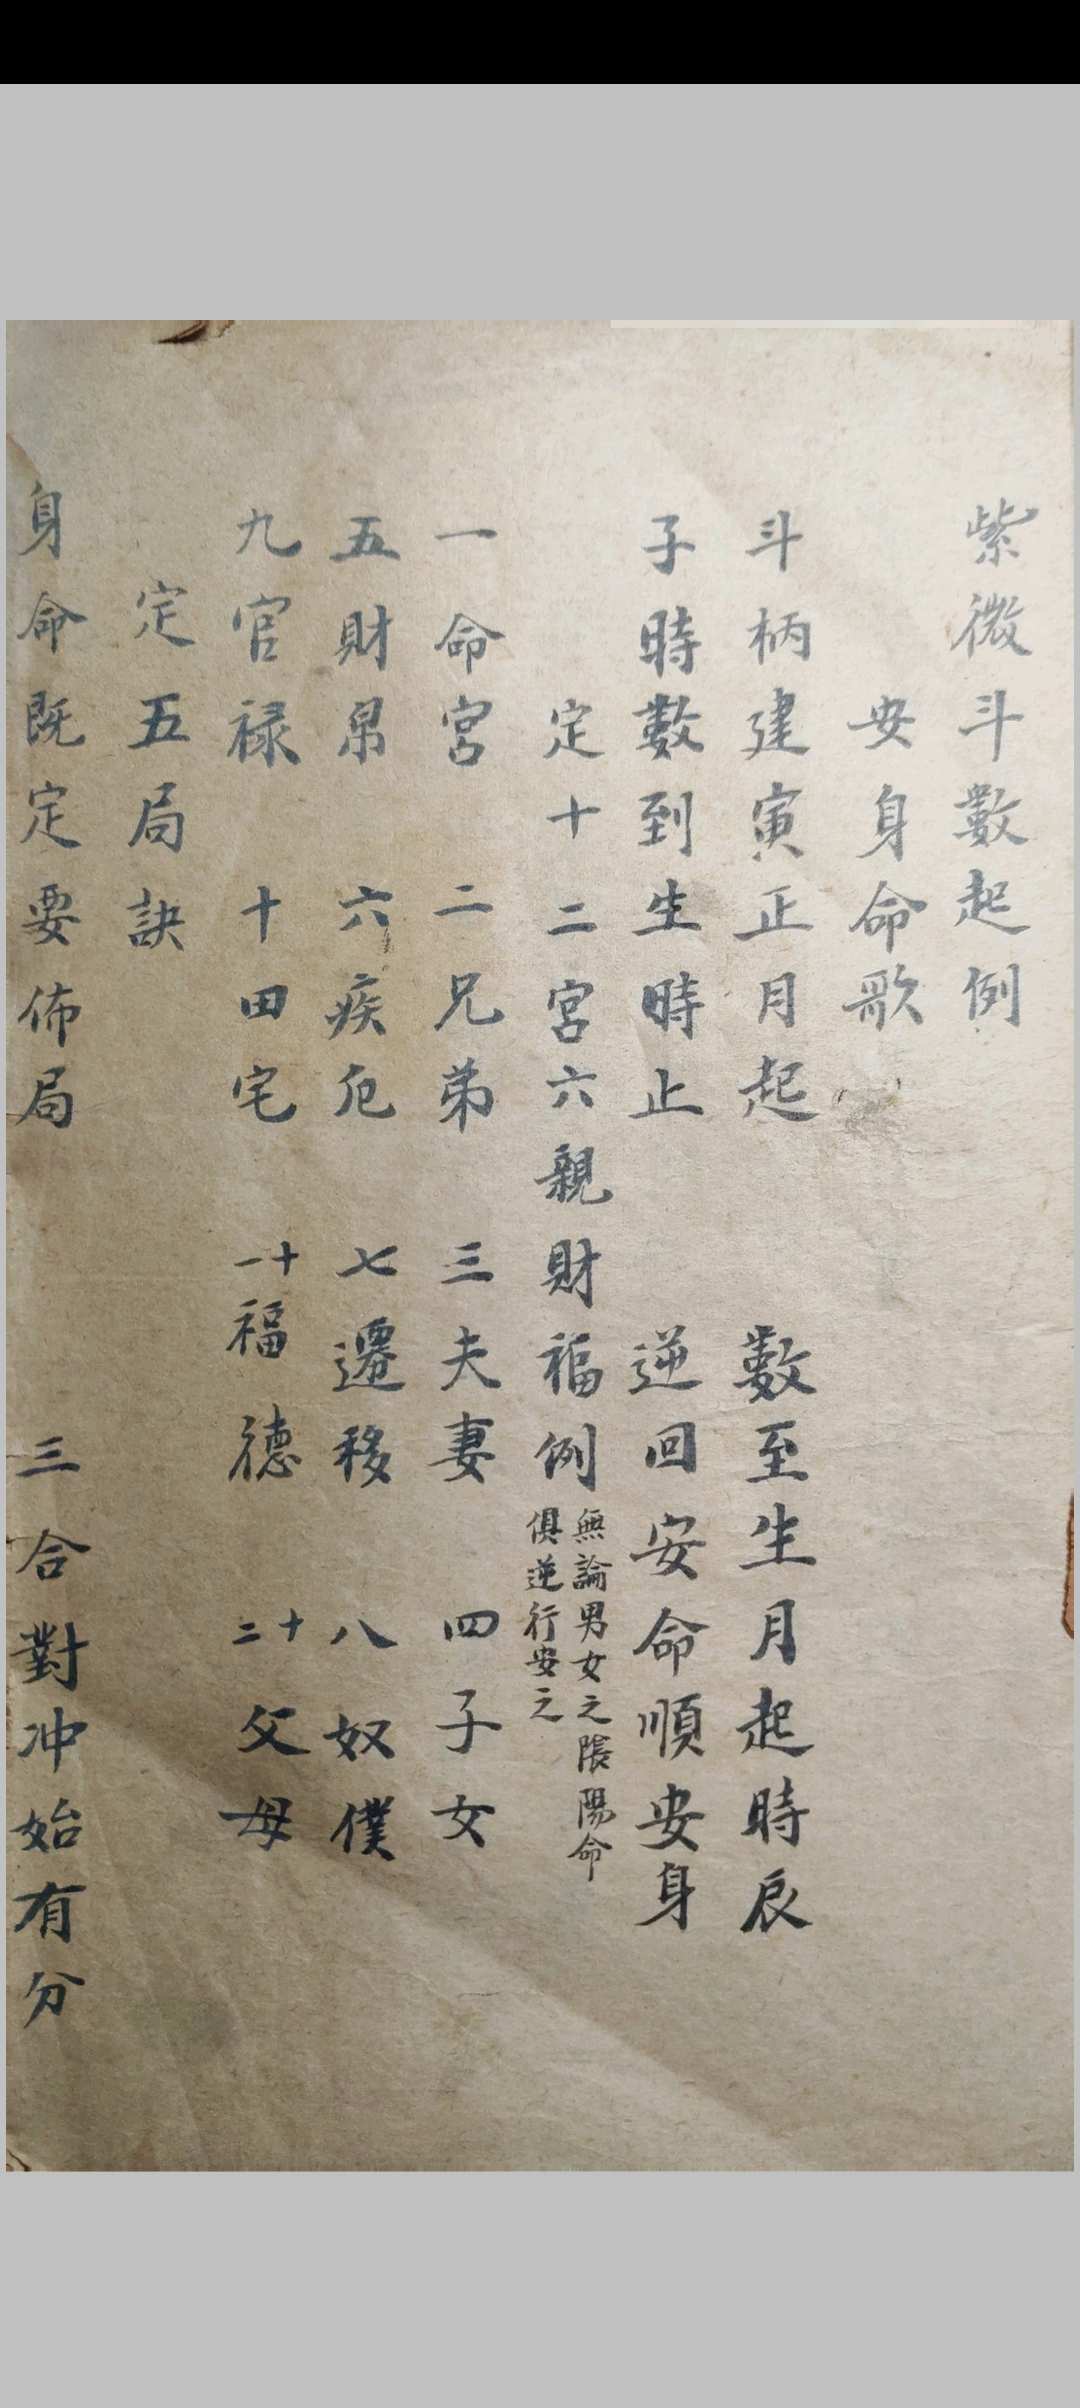 紫微斗數起例
安身命歌
斗柄建寅正月起　數至生月起時辰
子時數到生時止　逆回安命順安身
定十二宮六親財福例 無論男女之陰陽命
俱逆行安之
一命宮　二兄弟　三夫妻　四子女
五財帛　六疾厄　七遷移　八奴僕
九官祿　十田宅　十一福德　十二父母
定五局訣
身命既定要佈局　三合對冲始有分